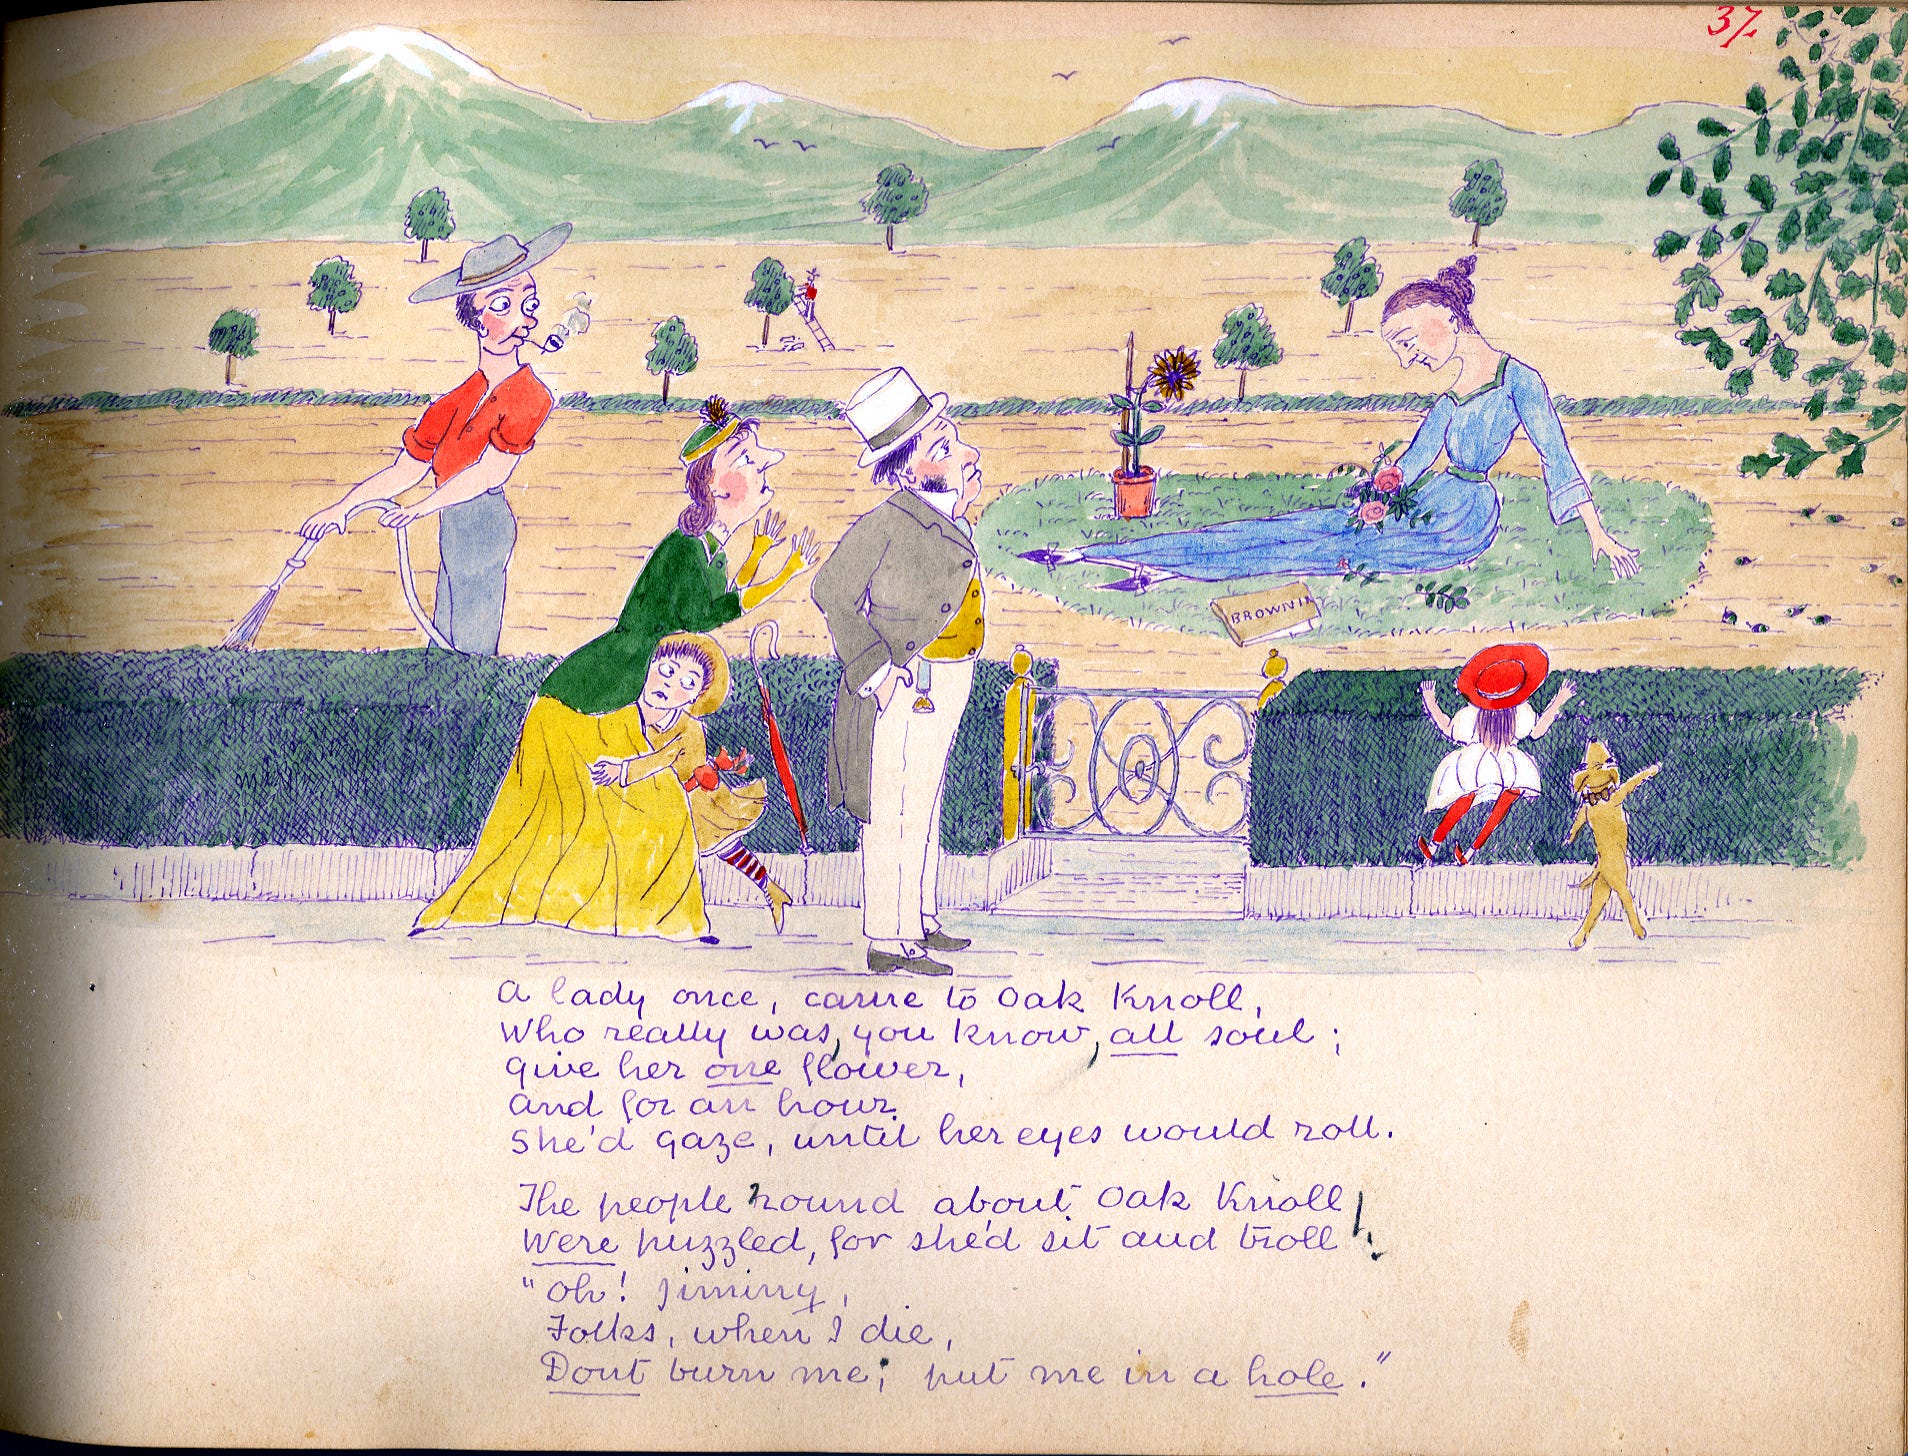 37.
BROWNIN
A lady once, came to Oak Knoll,
Who really was, you know, all soul;
Give her one flower,
And for an hour
She'd gaze, until her eyes would roll.
The people round about Oak Knoll,
Were puzzled, for she'd sit and troll:
"Oh! Jiminy,
Folks, when I die,
Dont burn me; put me in a hole."